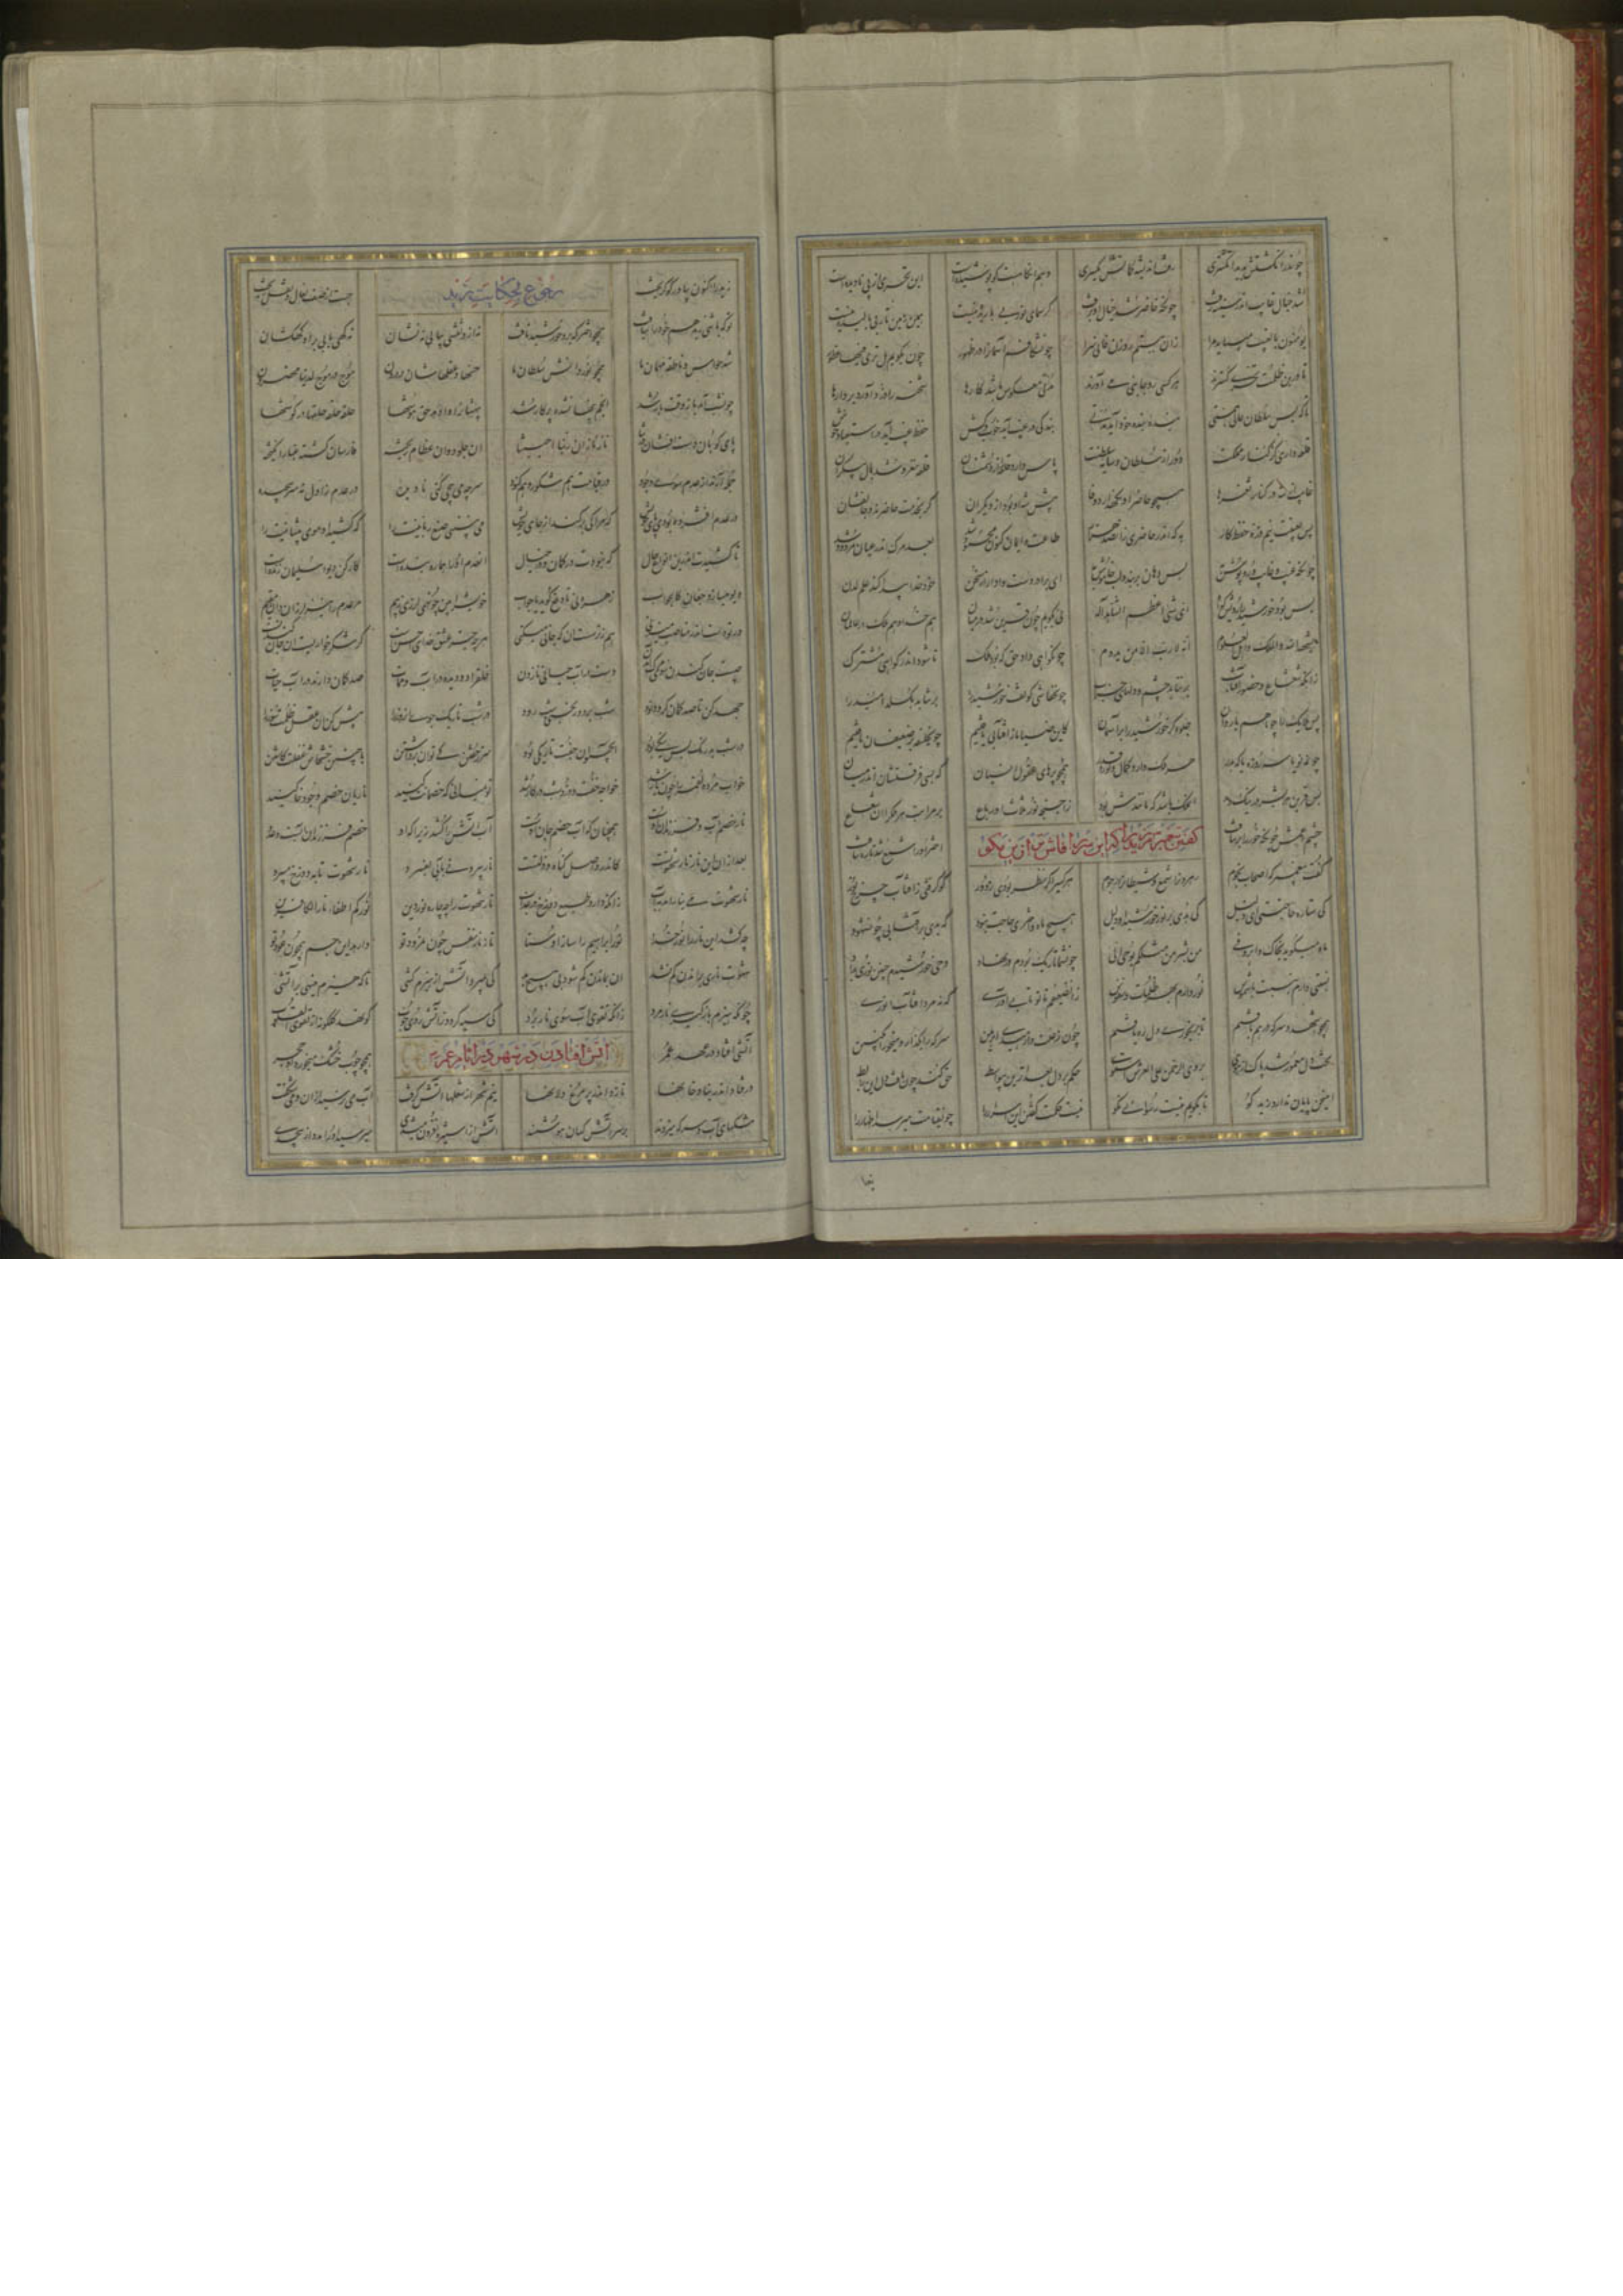 چون در انگشتش بدید انگشتری رفت اندیشه گمانش یکسری وهم آنگاهست کو پوشیده است این تحری از پی نادیده است
شد خیال غایب اندر سینه زفت چونکه حاضر شد خیال او برفت گر سمای نور بی باریده نیست هم زمین تار بی بالیده نیست
یؤمنون بالغیب میباید مرا زان ببستم روزن فانی سرا چون شکافم آسمان را در ظهور چون بگویم هل تری فیها فطور
تا درین ظلمت تحری گسترند هر کسی رو جانبی می آورند مدتی معکوس باشد کارها شحنه را دزد آورد بر دارها
تا که بس سلطان عالی همتی بنده بنده خود آید مدتی بندگی در غیب آید خوب و کش حفظ غیب آید در استعباد خوش
قلعه داری کز کنار مملکت دور از سلطان و سایه سلطنت پاس دارد قلعه را از دشمنان قلعه نفروشد بمال بیکران
غایب از شه در کنار ثغرها همچو حاضر او نگه دارد وفا پیش شه او به بود از دیگران که بخدمت حاضرند و جانفشان
پس بغیبت نیم ذره حفظ کار به که اندر حاضری زان صد هزار طاعت و ایمان کنون محمود شد بعد مرگ اندر عیان مردود شد
چونکه غیب و غایب و روپوش به پس دهان بربند و لب خاموش به ای برادر دست وادار از سخن خود خدا پیدا کند علم لدن
بس بود خورشید را رویش گواه ای شی اعظم الشاهد اله نی بگویم چون قرین شد در بیان هم خدا و هم ملک هم عالمان
یشهد الله و الملک و اهل العلوم انه لا رب الا من یدوم چون گواهی داد حق که بود ملک تا شود اندر گواهی مشترک
زانکه شعشاع و حضور آفتاب برنتابد چشم و دلهای خراب چون خفاشی کو تف خورشید را برنتابد بگسلد امید را
پس ملایک را چو ما هم یار دان جلوه گر خورشید را بر آسمان کاین ضیا ما ز آفتابی یافتیم چون خلیفه بر ضعیفان تافتیم
چون مه نو یا سه روزه یا که بدر هر ملک دارد کمال و نور و قدر همچو پرهای عقول انسیان که بسی فرقستشان اندر میان
پس قرین هر بشر در نیک و بد آن ملک باشد که مانندش بود ز اجنحه نور ثلاث او رباع بر مراتب هر ملک را آن شعاع
چشم اعمش چونکه خور را برنتافت اختر او را شمع شد تا ره بیافت
گفتن پیغمبر مر زید را که این سر را فاش تر ازین مگوی
گفت پیغمبر که اصحابی نجوم رهروان را شمع و شیطان را رجوم هر کسی را گر نظر بودی ز دور کو گرفتی ز آفتاب چرخ نور
کی ستاره حاجتستی ای ذلیل کی بدی بر نور خورشید او دلیل هیچ ماه و اختری حاجت نبود که بدی بر آفتابی چون شهود
ماه میگوید بخاک و ابر و فی من بشر من مثلکم یوحی الی چون شما تاریک بودم در نهاد وحی خورشیدم چنین نوری بداد
ظلمتی دارم بنسبت با شموس نور دارم بهر ظلمات نفوس زان ضعیفم تا تو تابی آوری که نه مرد آفتاب انوری
همچو شهد و سرکه در هم بافتم تا برنجوری جگر ره یافتم چون ز علت وارهیدی ای رهین سرکه را بگذار و میخور انگبین
تخت دل معمور شد پاک از هوی بر وی الرحمن علی العرش استوی حکم بر دل بعد ازین بی واسطه حق کند چون یافت دل این رابطه
این سخن پایان ندارد زید کو تا بگویم نیست رسوایی نکو نیست حکمت گفتن این سرها چون قیامت میرسد اظهار را
رجوع بحکایت زید
زید را اکنون نیابی کو گریخت جست از صف نعال و نعل ریخت
تو که باشی زید هم خود را نیافت همچو اختر که برو خورشید تافت نه ازو نقشی بیابی نه نشان نه کهی یابی براه کهکشان
شد حواس و نطق بی پایان ما محو نور دانش سلطان ما حسها و عقلهاشان در درون موج در موج لدینا محضرون
چون شب آمد باز وقت بار شد انجم پنهان شده بر کار شد بیهشان را وادهد حق هوشها حلقه حلقه حلقها در گوشها
پای کوبان دست افشان در ثنا ناز نازان ربنا احییتنا آن جلود و آن عظام ریخته فارسان گشته غبار انگیخته
حمله آرند از عدم سوی وجود در قیامت هم شکور و هم کنود سر چه می پیچی کنی نادیدن در عدم ز اول نه سر پیچیده
در عدم افشرده بودی پای خویش که مرا کی برکند از جای خویش می نبینی صنع ربانیت را که کشید او موی پیشانیت را
تا کشیدت اندرین انواع حال که نبودت در گمان و در خیال آن عدم او را هماره بنده است کار کن دیوا سلیمان زنده است
دیو میسازد جفان کالجواب زهره نی تا دفع گوید یا جواب خویش را بین چون همی لرزی ز بیم مر عدم را نیز لرزان دان مقیم
ور تو دست اندر مناصب میزنی هم ز ترس آن که جانی میکنی هرچه جز عشق خدای احسنست گر شکر خوارست آن جان کندنست
چیست جان کندن سوی مرگ آمدن دست در آب حیاتی نازدن خلق را دو دیده در خاک و ممات صد گمان دارند در آب حیات
جهد کن تا صد گمان گردد نود شب برو ور تو بخسبی شب رود در شب تاریک جوی آن روز را پیش کن آن عقل ظلمت سوز را
در شب بد رنگ بس نیکی بود آب حیوان جفت تاریکی بود سر ز خفتن کی توان برداشتن با چنین صد تخم غفلت کاشتن
خواب مرده لقمه مرده یار شد خواجه خفت و دزد شب بر کار شد تو نمیدانی که خصمانت کیند ناریان خصم وجود خاکیند
نار خصم آب و فرزندان اوست همچنان که آب خصم جان اوست آب آتش را کشد زیرا که او خصم فرزندان آبست و عدو
بعد از آن این نار نار شهوتست کاندرو اصل گناه و زلتست نار بیرونی بآبی بفسرد نار شهوت تا بدوزخ میبرد
نار شهوت می نیارامد بآب زانکه دارد طبع دوزخ در عذاب نار شهوت را چه چاره نور دین نورکم اطفاء نار الکافرین
چه کشد این نار را نور خدا نور ابراهیم را ساز اوستا تا ز نار نفس چون نمرود تو وارهد این جسم همچون عود تو
شهوت ناری براندن کم نشد آن بماندن کم شود بی هیچ بد تا که هیزم مینهی بر آتشی کی بمیرد آتش از هیزم کشی
چونکه هیزم باز گیری نار مرد زانکه تقوی آب سوی نار برد کی سیه گردد ز آتش روی خوب کو نهد گلگونه از تقوی القلوب
آتش افتادن در شهر در ایام عمر
آتشی افتاد در عهد عمر همچو چوب خشک میخورد او حجر
در فتاد اندر بنا و خانها تا زد اندر پر مرغ و لانها نیم شهر از شعلها آتش گرفت آب می ترسید از آن و می شگفت
مشکهای آب و سرکه میزدند بر سر آتش کسان هوشمند آتش از استیزه افزون میشدی میرسید او را مدد از بیحدی